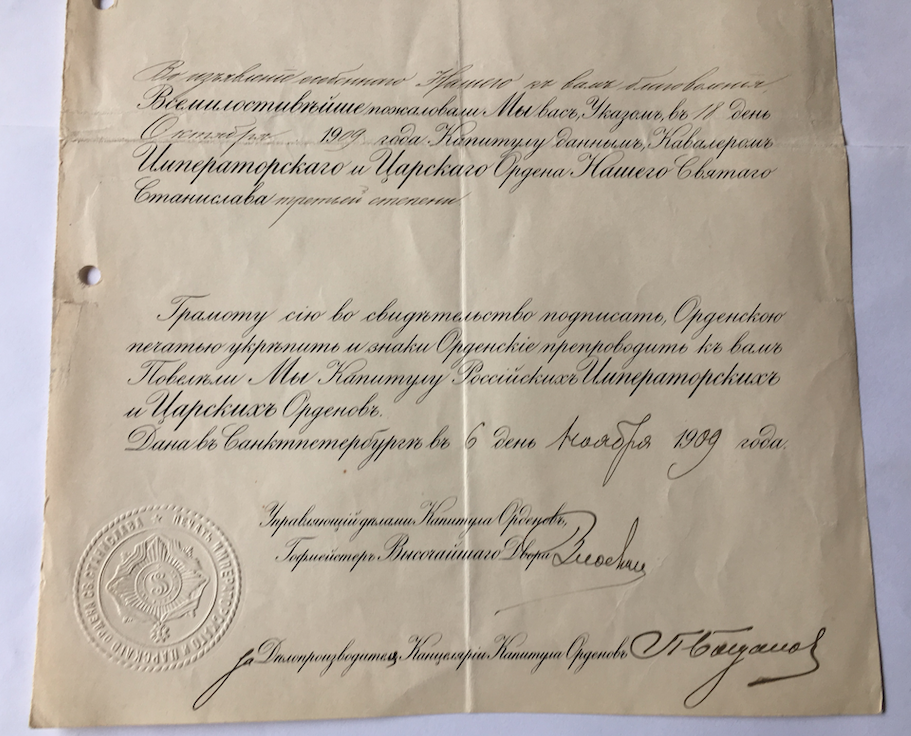 Во изъявленіе особеннаго Нашего къ вамъ благоволенія,
Всемилостивѣйше пожаловали Мы васъ, Указомъ, въ 18 день
Октября 1909 года Капитулу даннымъ, Кавалеромъ
Императорскаго и Царскаго Ордена Нашего Святаго
Станислава третьей степени
Грамоту сію во свидѣтельство подписать, Орденскою
печатью укрѣпить и знаки Орденскіе препроводить къ вамъ
Повелѣли Мы Капитулу Россійскихъ Императорскихъ
и Царскихъ Орденовъ.
Дана въ Санктпетербургѣ въ 6 день Ноября 1909 года.
Управляющій дѣлами Капитула Орденовъ,
Гофмейстеръ Высочайшаго Двора
за Дѣлопроизводителя Канцеляріи Капитула Орденовъ
ПЕЧАТЬ ИМПЕРАТОРСКОГО И ЦАРСКАГО ОРДЕНА СВ. СТАНИСЛАВА
S